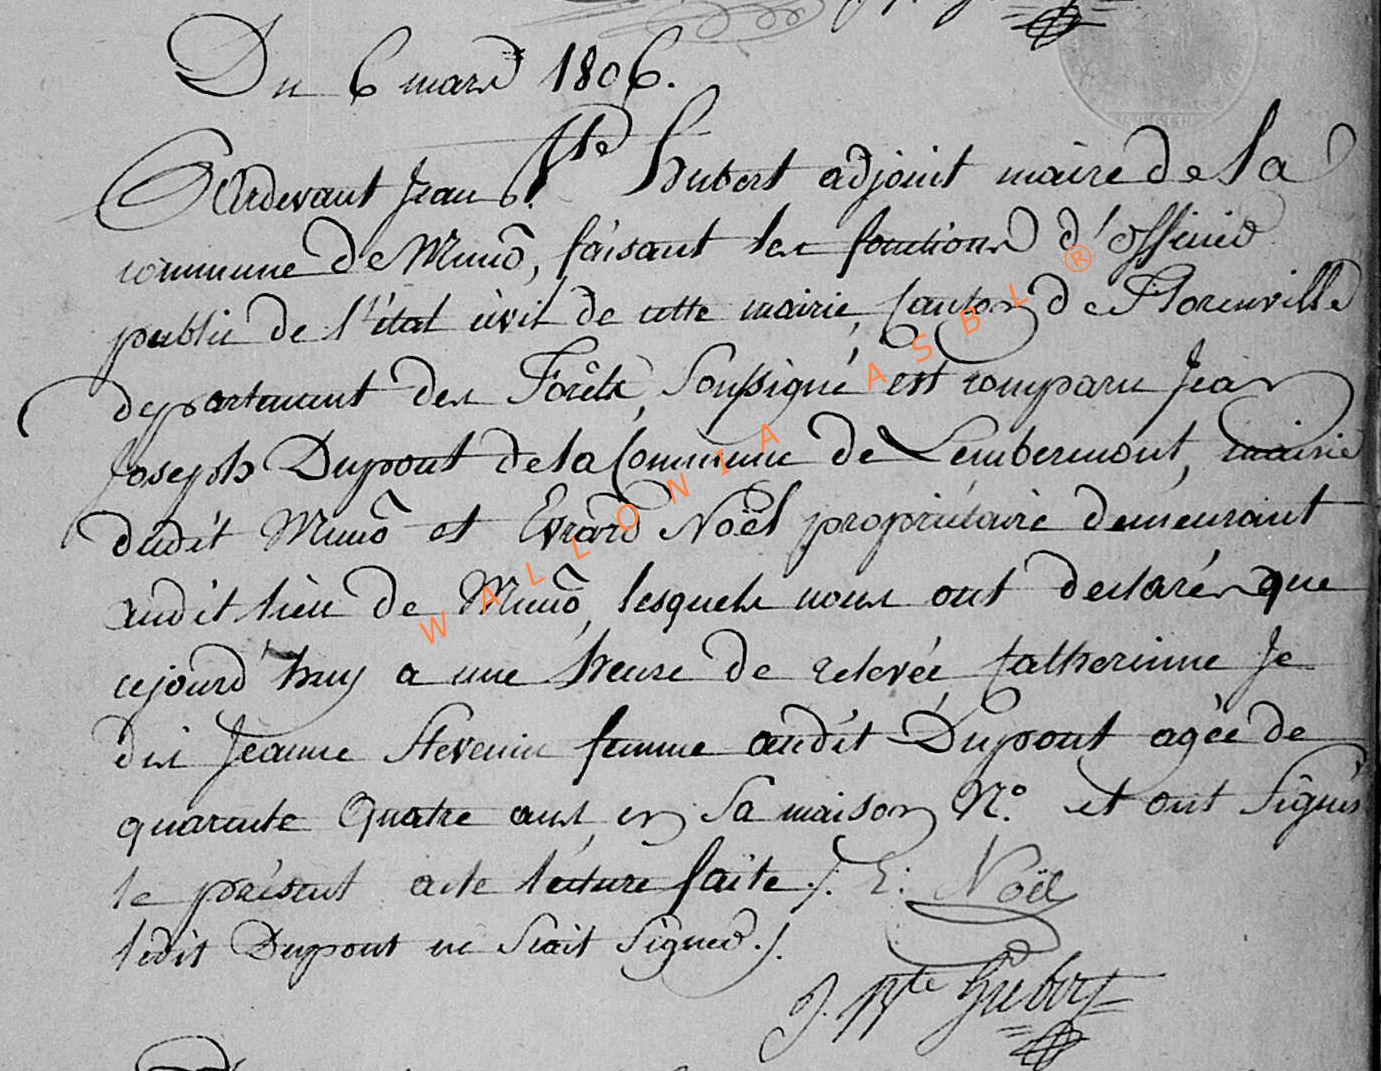 Du 6 mars 1806.
Pardevant Jean Bte hubert adjoint maire de la
commune de Muno, faisant les fonctions d'officier
public de l'état civil de cette mairie, Canton de Florenville
departement des Forêts, Soussigné est comparu Jean
Joseph Dupont de la Commune de Lembermont, mairie
dudit Muno et Evrard Noël propriétaire demeurant
audit lieu de Muno, lesquels nous ont declarés que
cejourd'huy a une heure de relevée Catherinne Je
dis Jeanne Stevenin femme audit Dupont agée de
quarente Quatre ans en Sa maison No. et ont Signés
le présent acte lecture faite ./. E: Noël
ledit Dupont ne Scait Signer ./.
J. Bte Hubert
WALLONIA ASBL ®